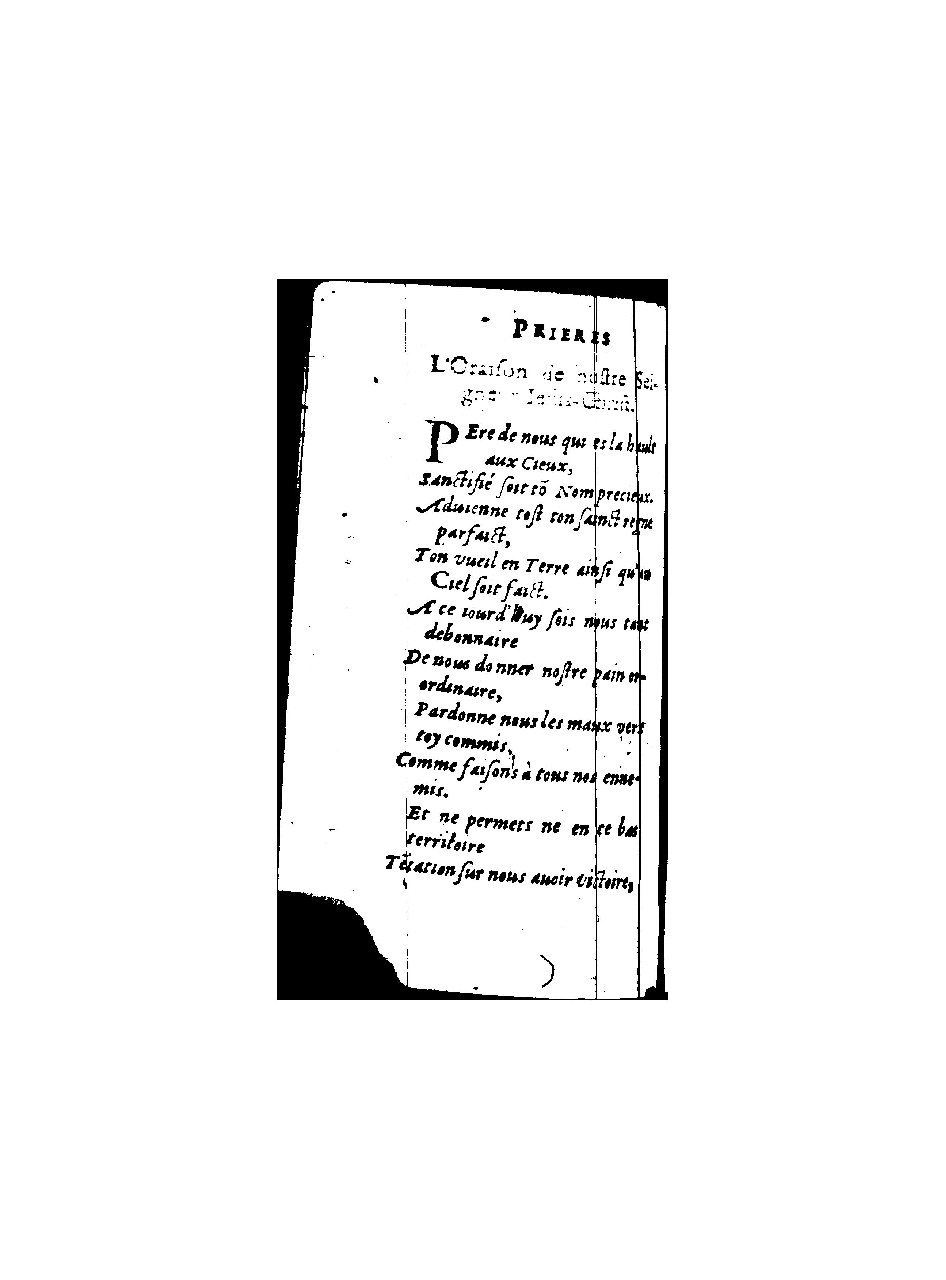 PRIERES
L'Oraiſon de noſtre Sei-
gneur Ieſus-Chriſt.
PEre de nous qui es la hault
aux Cieux,
Sanctifié ſoit tõ Nom precieux.
Aduienne toſt ton ſainct regne
parfaict,
Ton vueil en Terre ainſi qu'en
Ciel ſoit faict.
A ce iourd'huy ſois nous tant
debonnaire
De nous donner noſtre pain or-
ordinaire,
Pardonne nous les maux vers
toy commis,
Comme faiſons à tous nos enne-
mis.
Et ne permets ne en ce bas
territoire
Tẽtation ſur nous auoir victoire,